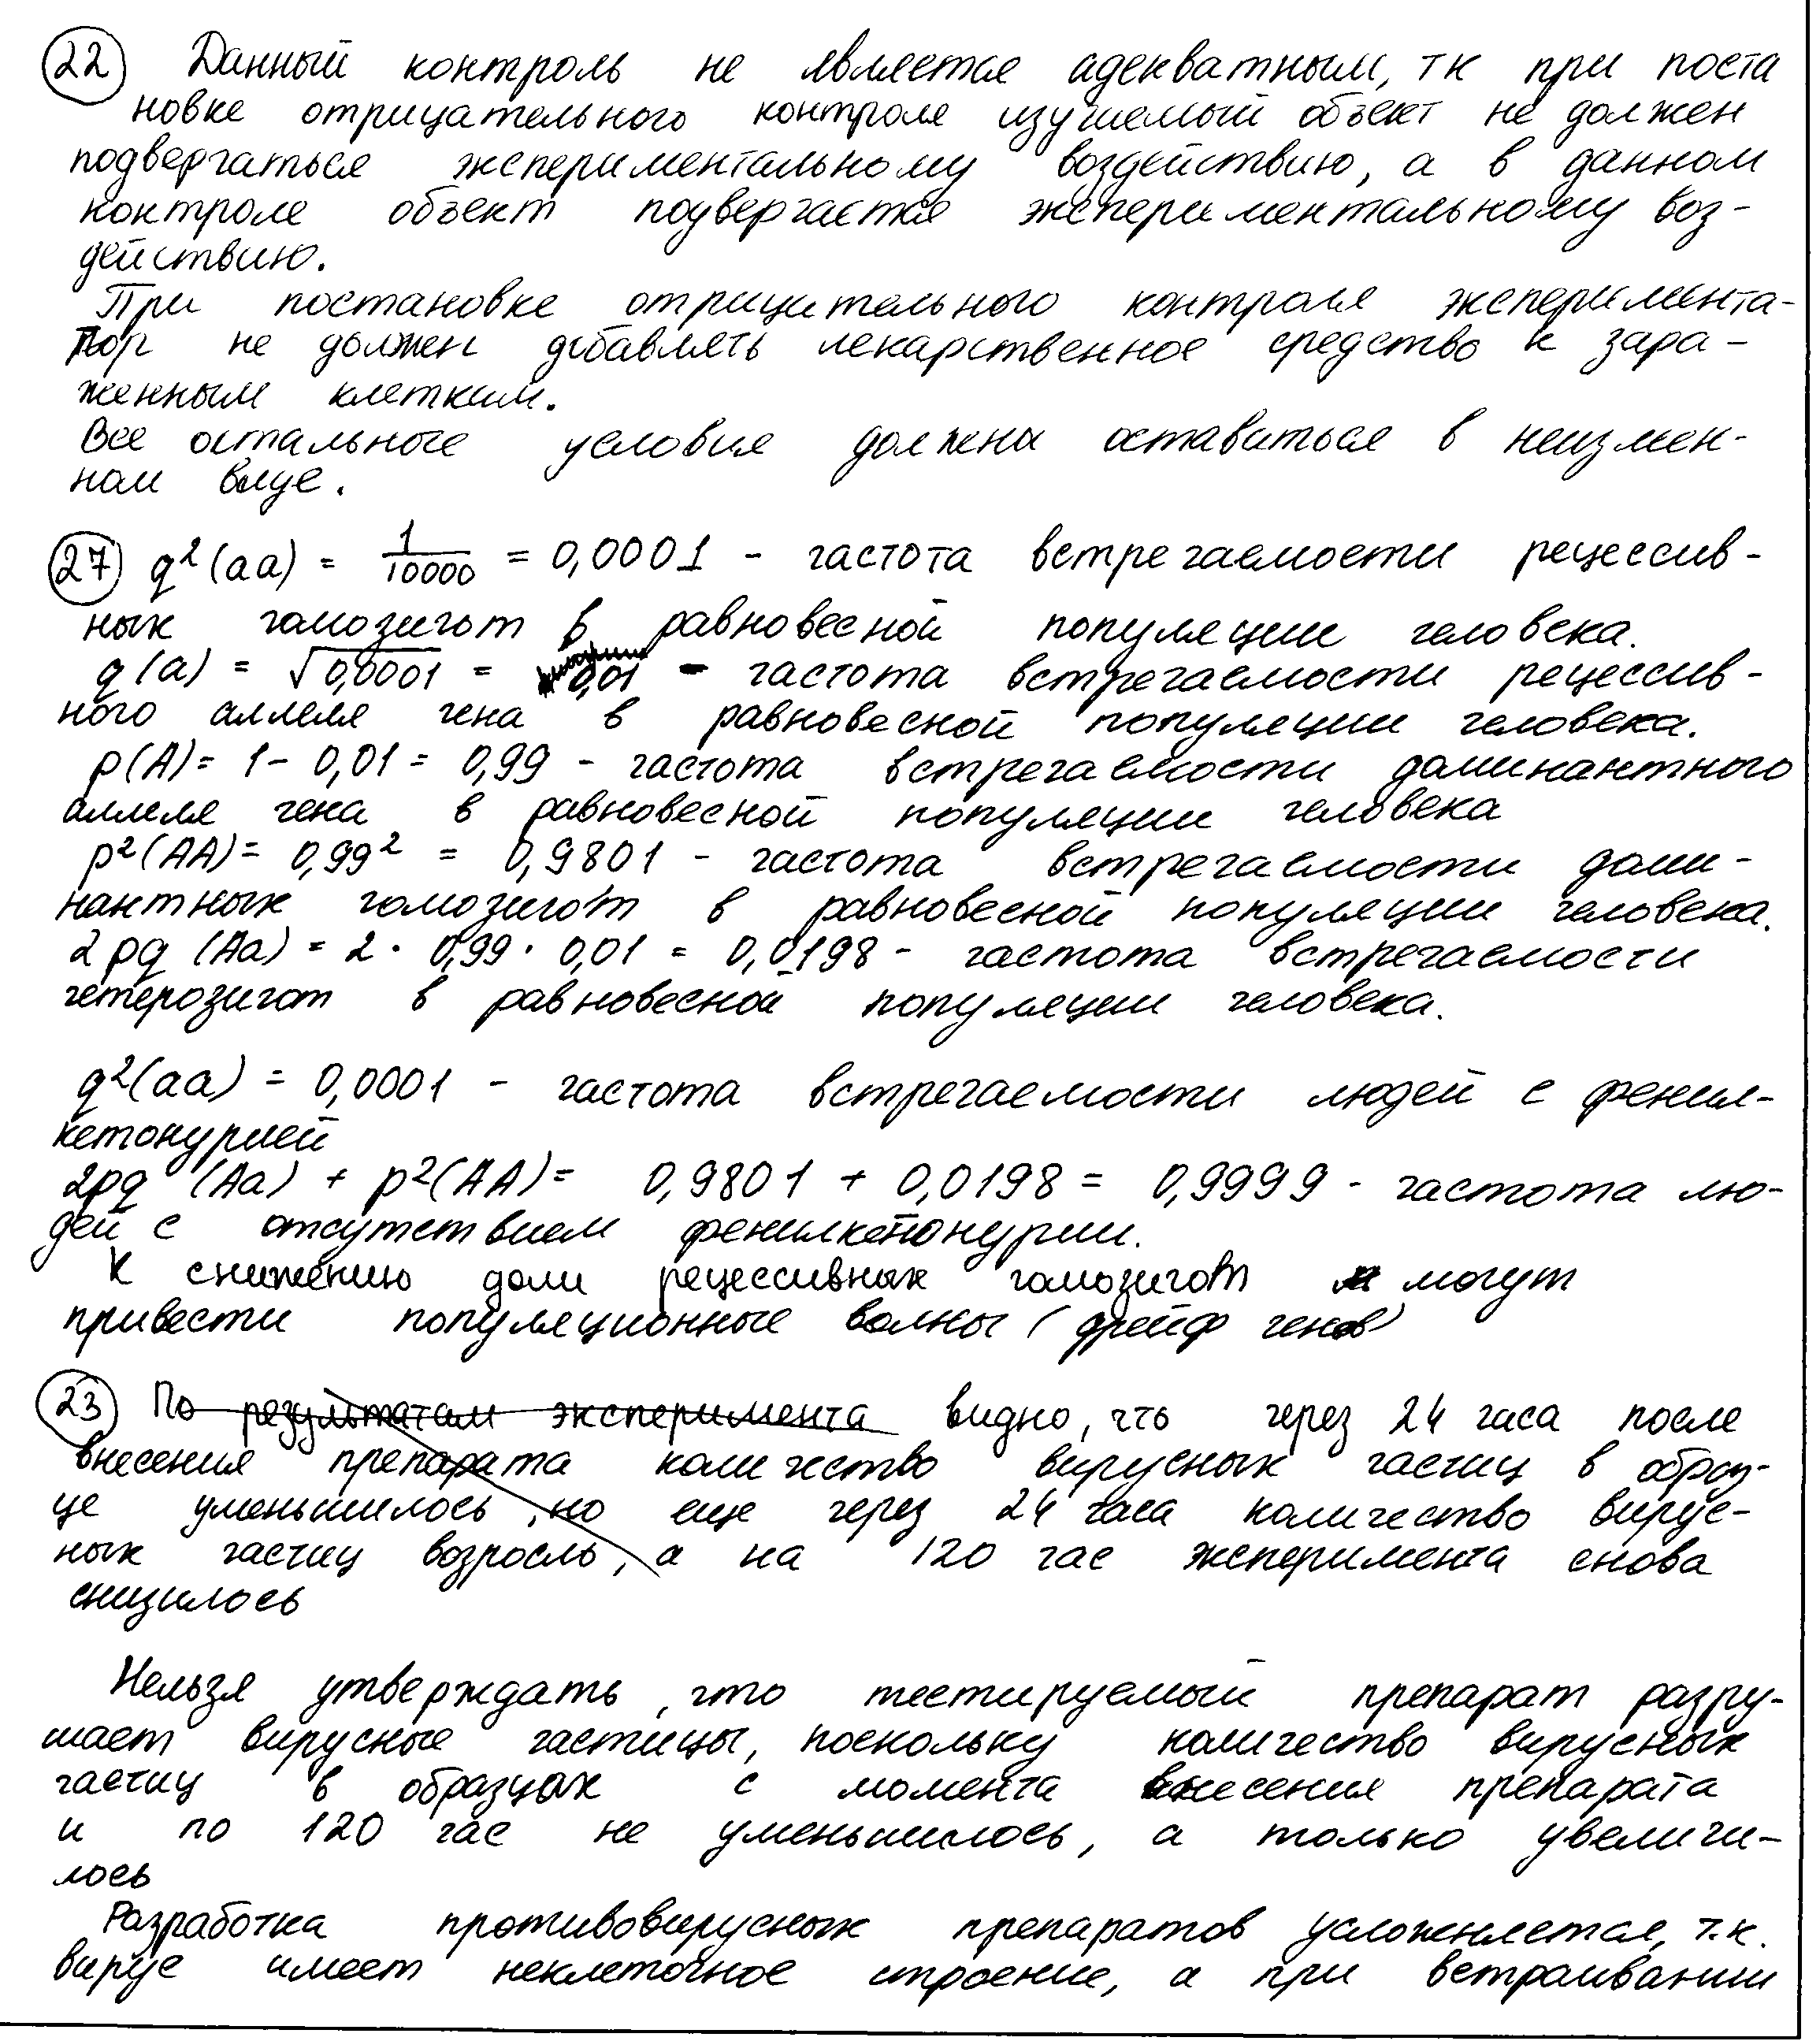 22 Данный контроль не является адекватным, тк при поста
новке отрицательного контроля изучаемый объект не должен
подвергаться экспериментальному воздействию, а в данном
контроле объект подвергается экспериментальному воз-
действию.
При постановке отрицательного контроля эксперимента-
тор не должен добавлять лекарственное средство к зара-
женным клеткам.
Все остальные условия должны оставаться в неизмен-
ном виде.
27 q²(aa) = 1/10000 = 0,0001 - частота встречаемости рецессив-
ных гомозигот в равновесной популяции человека.
q(a) = √0,0001 = 0,01 - частота встречаемости рецессив-
ного аллеля гена в равновесной популяции человека.
p(A) = 1 - 0,01 = 0,99 - частота встречаемости доминантного
аллеля гена в равновесной популяции человека
p²(AA) = 0,99² = 0,9801 - частота встречаемости доми-
нантных гомозигот в равновесной популяции человека.
2pq (Aa) = 2 · 0,99 · 0,01 = 0,0198 - частота встречаемости
гетерозигот в равновесной популяции человека.
q²(aa) = 0,0001 - частота встречаемости людей с фенил-
кетонурией
2pq (Aa) + p²(AA) = 0,9801 + 0,0198 = 0,9999 - частота лю-
дей с отсутствием фенилкетонурии.
К снижению доли рецессивных гомозигот могут
привести популяционные волны (дрейф генов)
23 По результатам эксперимента видно, что через 24 часа после
внесения препарата количество вирусных частиц в образ-
це уменьшилось, но еще через 24 часа количество вирус-
ных частиц возросль, а на 120 час эксперимента снова
снизилось
Нельзя утверждать, что тестируемый препарат разру-
шает вирусные частицы, поскольку количество вирусных
частиц в образцах с момента внесения препарата
и по 120 час не уменьшилось, а только увеличи-
лось
Разработка противовирусных препаратов усложняется, т.к.
вирус имеет неклеточное строение, а при встраивании